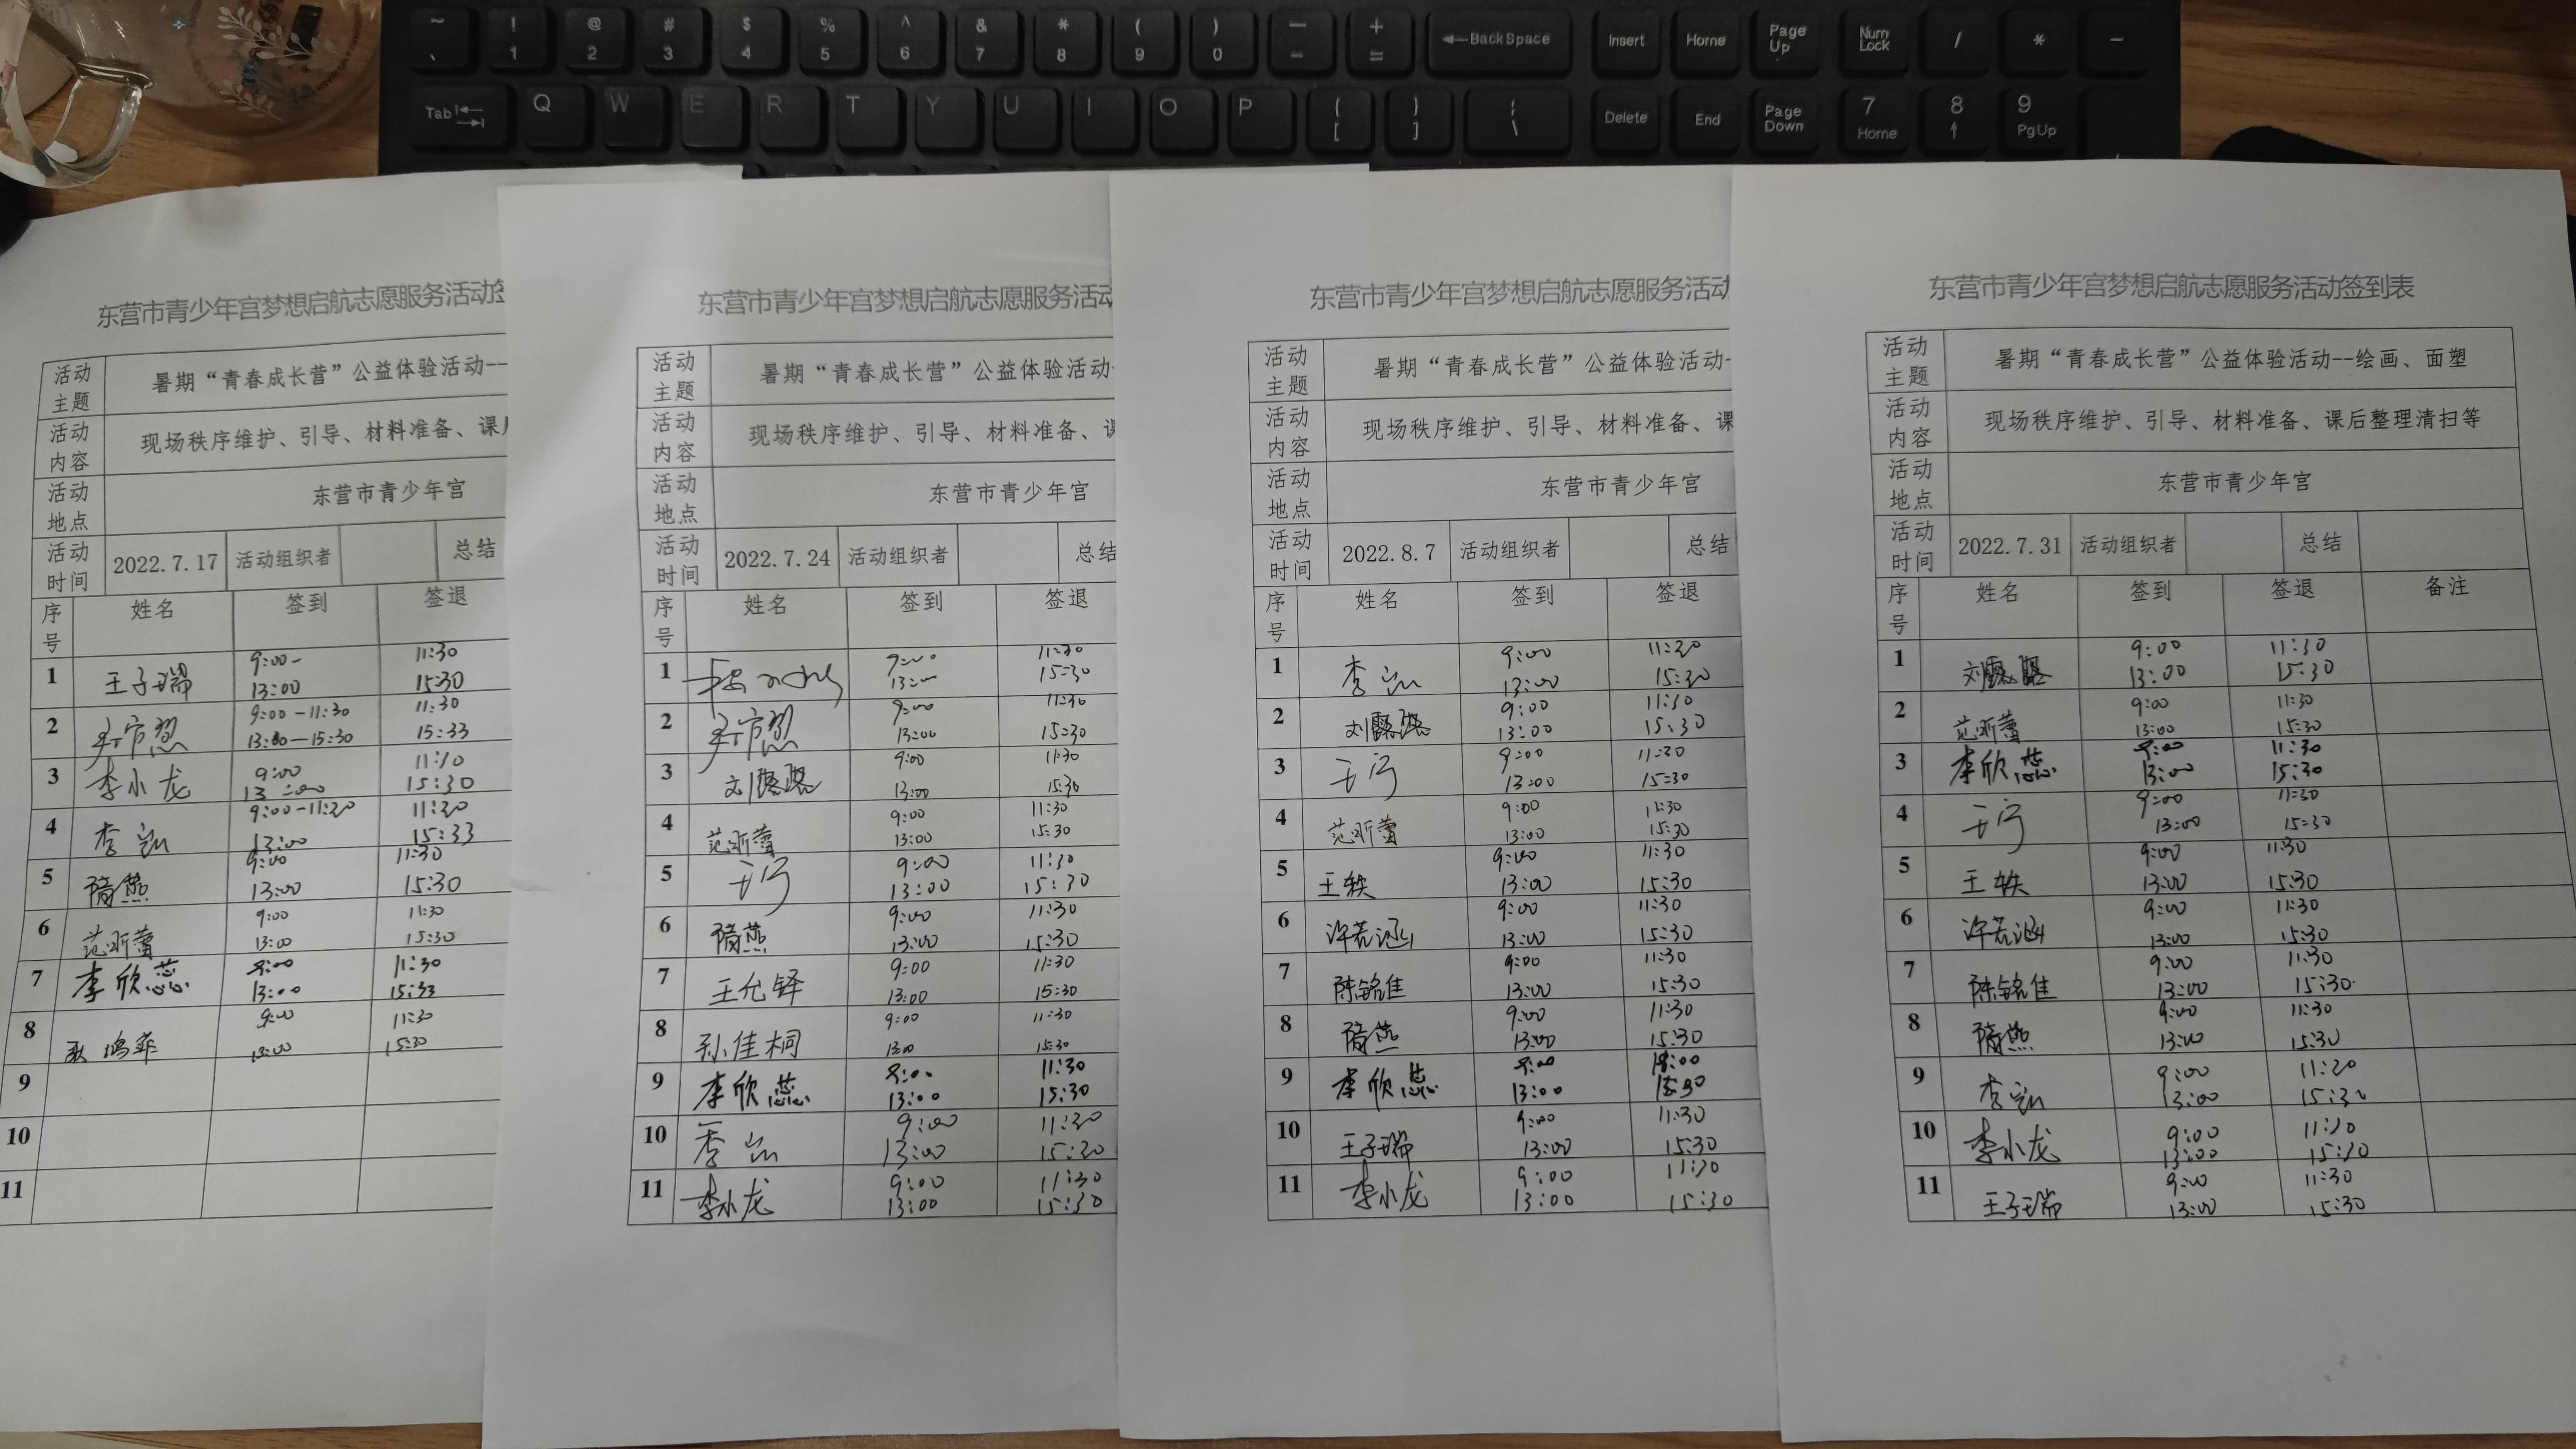 ~ ! @ # $ % ^ & * ( ) — + ←BackSpace Insert Home Page Up Num Lock / * −
、 1 2 3 4 5 6 7 8 9 0 − =
Tab Q W E R T Y U I O P { [ } ] ¦ \ Delete End Page Down 7 Home 8 ↑ 9 PgUp
东营市青少年宫梦想启航志愿服务活动签
活动主题 暑期“青春成长营”公益体验活动--
活动内容 现场秩序维护、引导、材料准备、课
活动地点 东营市青少年宫
活动时间 2022.7.17 活动组织者 总结
序号 姓名 签到 签退
1 王子瑞 9:00- 11:30
13:00 15:30
2 9:00-11:30 11:30
13:00-15:30 15:33
3 李小龙 9:00 11:30
13:00 15:30
4 李 9:00-11:30 11:30
13:00 15:33
5 隋燕 9:00 11:30
13:00 15:30
6 范昕蕾 9:00 11:30
13:00 15:30
7 李欣蕊 9:00 11:30
13:00 15:33
8 鸿菲 9:00 11:30
13:00 15:30
9
10
11
东营市青少年宫梦想启航志愿服务活动
活动主题 暑期“青春成长营”公益体验活动-
活动内容 现场秩序维护、引导、材料准备、课
活动地点 东营市青少年宫
活动时间 2022.7.24 活动组织者 总结
序号 姓名 签到 签退
1 9:00 11:30
13:00 15:30
2 9:00 11:30
13:00 15:30
3 刘 9:00 11:30
13:00 15:30
4 范昕蕾 9:00 11:30
13:00 15:30
5 9:00 11:30
13:00 15:30
6 隋燕 9:00 11:30
13:00 15:30
7 王允铎 9:00 11:30
13:00 15:30
8 孙佳桐 9:00 11:30
13:00 15:30
9 李欣蕊 9:00 11:30
13:00 15:30
10 李 9:00 11:30
13:00 15:30
11 李小龙 9:00 11:30
13:00 15:30
东营市青少年宫梦想启航志愿服务活动
活动主题 暑期“青春成长营”公益体验活动-
活动内容 现场秩序维护、引导、材料准备、课
活动地点 东营市青少年宫
活动时间 2022.8.7 活动组织者 总结
序号 姓名 签到 签退
1 李 9:00 11:30
13:00 15:30
2 刘 9:00 11:30
13:00 15:30
3 9:00 11:30
13:00 15:30
4 范昕蕾 9:00 11:30
13:00 15:30
5 王轶 9:00 11:30
13:00 15:30
6 许若涵 9:00 11:30
13:00 15:30
7 陈铭佳 9:00 11:30
13:00 15:30
8 隋燕 9:00 11:30
13:00 15:30
9 李欣蕊 9:00
13:00 15:30
10 王子瑞 9:00 11:30
13:00 15:30
11 李小龙 9:00 11:30
13:00 15:30
东营市青少年宫梦想启航志愿服务活动签到表
活动主题 暑期“青春成长营”公益体验活动--绘画、面塑
活动内容 现场秩序维护、引导、材料准备、课后整理清扫等
活动地点 东营市青少年宫
活动时间 2022.7.31 活动组织者 总结
序号 姓名 签到 签退 备注
1 刘 9:00 11:30
13:00 15:30
2 范昕蕾 9:00 11:30
13:00 15:30
3 李欣蕊 9:00 11:30
13:00 15:30
4 9:00 11:30
13:00 15:30
5 王轶 9:00 11:30
13:00 15:30
6 许若涵 9:00 11:30
13:00 15:30
7 陈铭佳 9:00 11:30
13:00 15:30
8 隋燕 9:00 11:30
13:00 15:30
9 李 9:00 11:30
13:00 15:30
10 李小龙 9:00 11:30
13:00 15:30
11 王子瑞 9:00 11:30
13:00 15:30